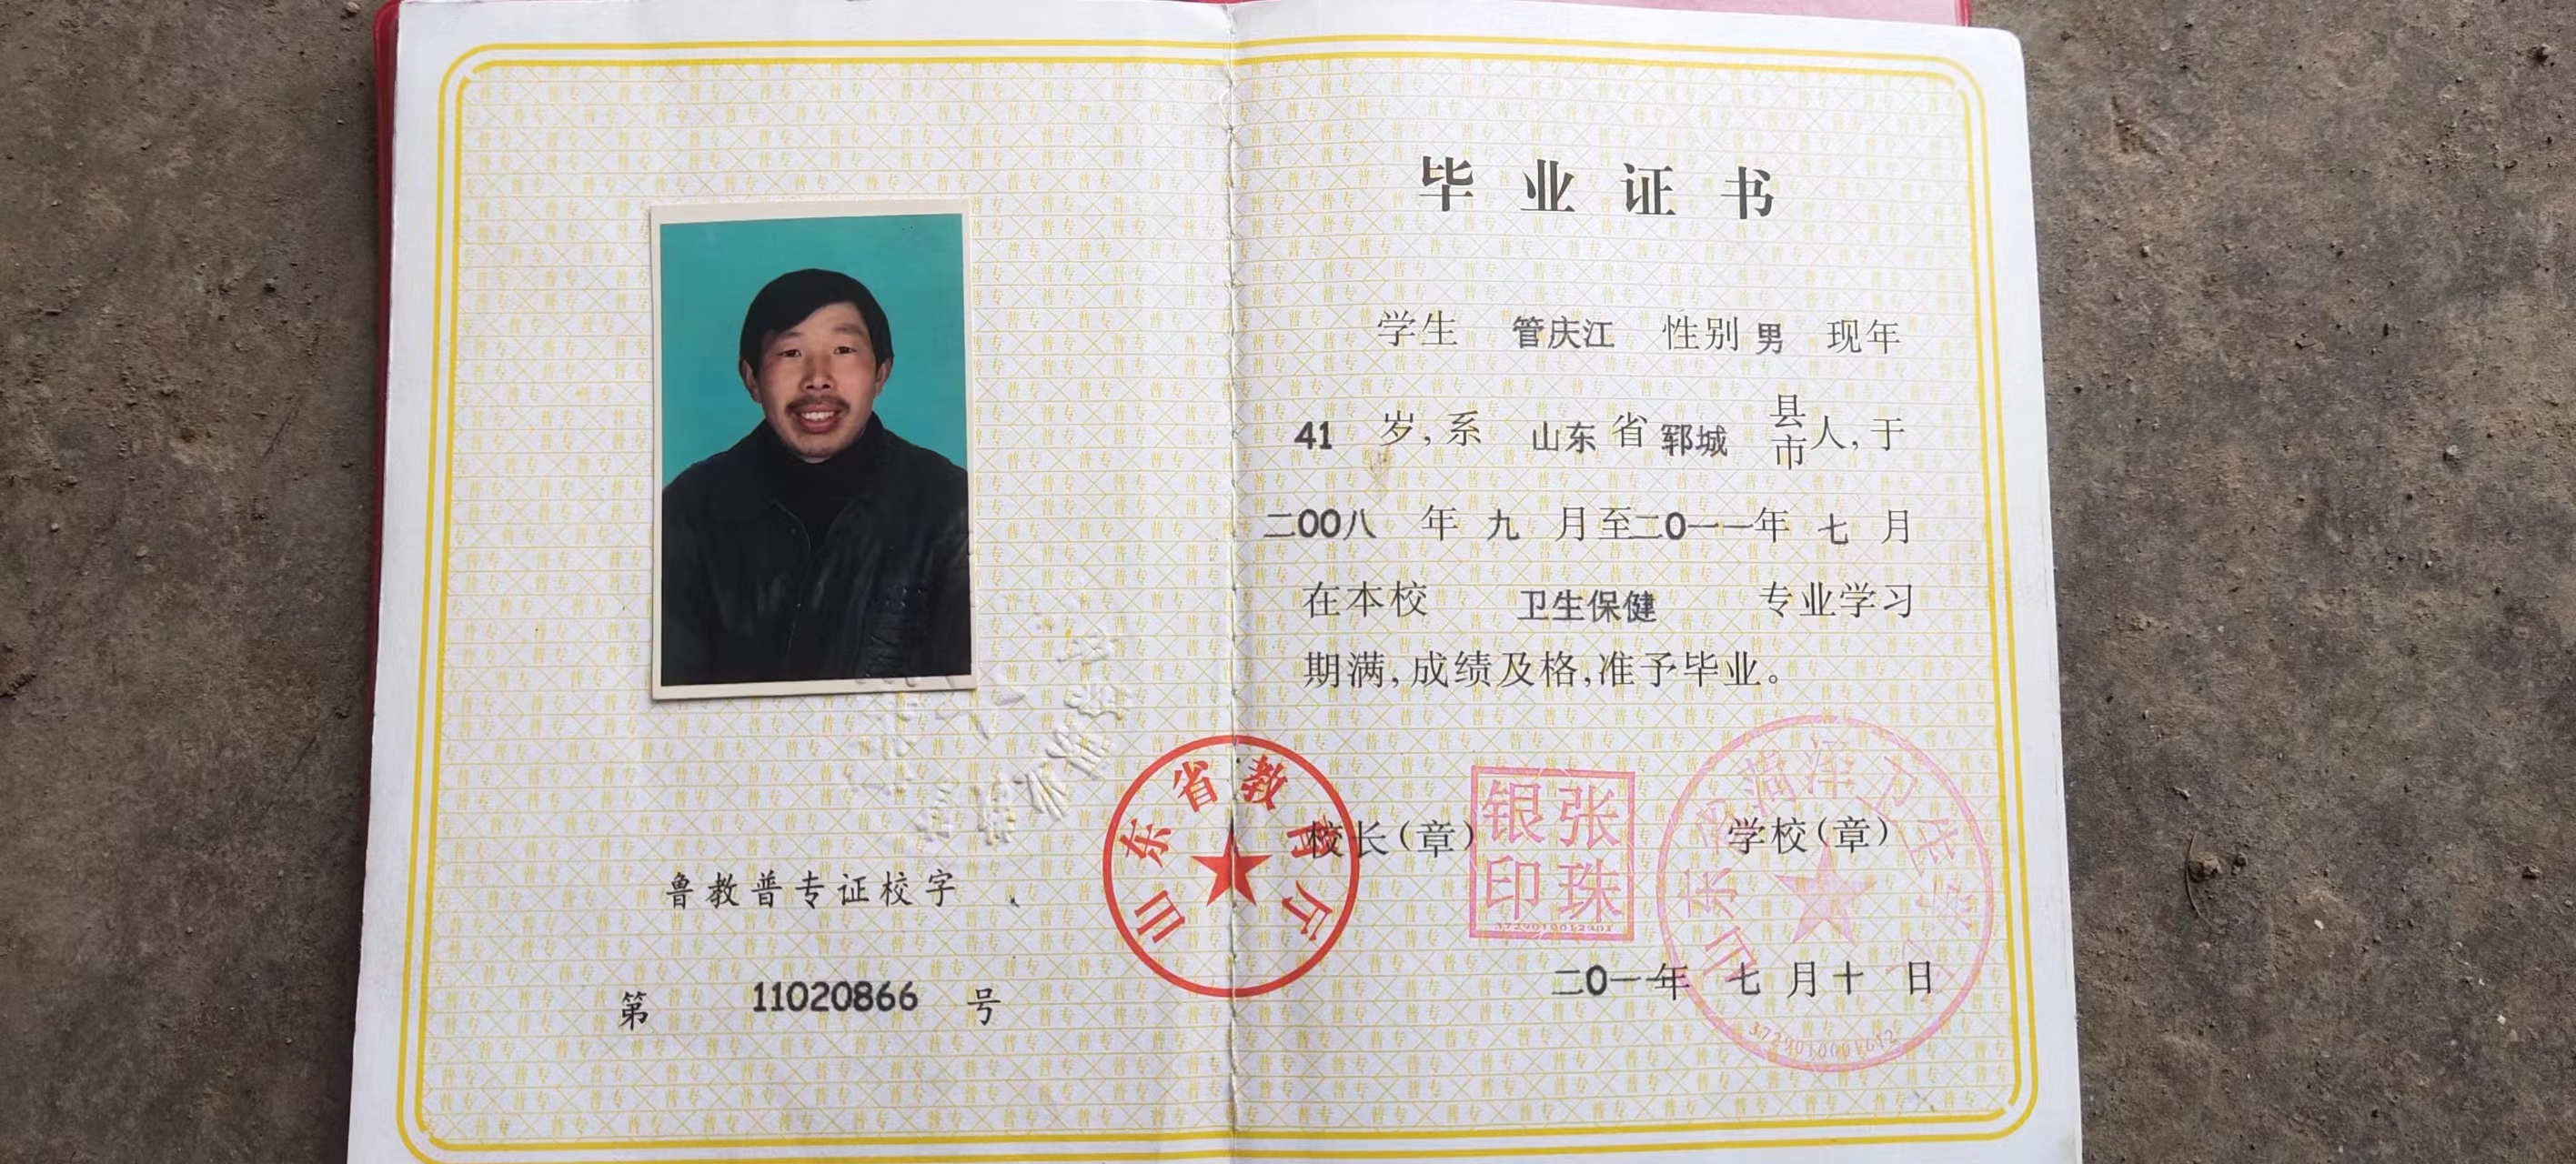 鲁教普专证校字
第 11020866 号
山东省教育厅
毕业证书
学生 管庆江 性别 男 现年
41 岁,系 山东 省 郓城 县市人,于
二00八 年 九 月至二0一一年 七 月
在本校 卫生保健 专业学习
期满,成绩及格,准予毕业。
校长(章) 学校(章)
张银珠印
3729010012901
山东省菏泽卫生学校
二0一一年 七 月 十 日